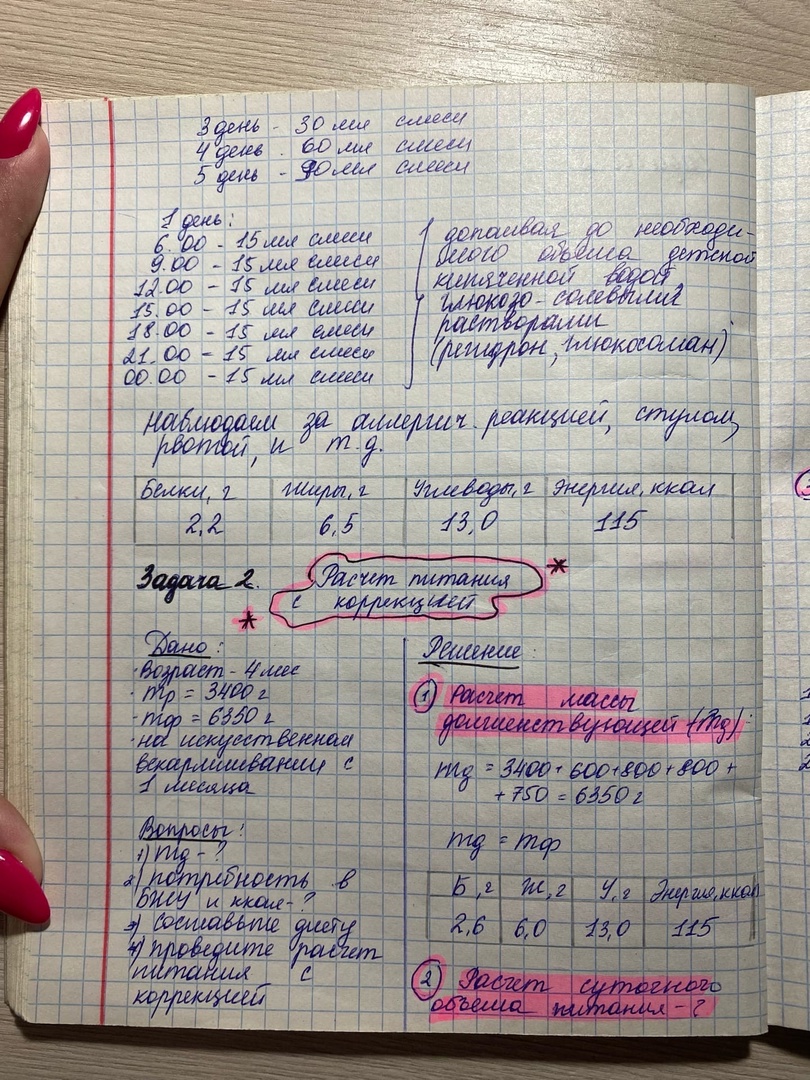 3 день - 30 мл смеси
4 день - 60 мл смеси
5 день - 90 мл смеси
1 день:
6.00 - 15 мл смеси
9.00 - 15 мл смеси
12.00 - 15 мл смеси
15.00 - 15 мл смеси
18.00 - 15 мл смеси
21.00 - 15 мл смеси
00.00 - 15 мл смеси
допаивая до необходи-
мого объема детской
кипяченной водой
глюкозо-солевыми
растворами
(регидрон, глюкосолан)
Наблюдаем за аллергич. реакцией, стулом,
рвотой, и т.д.
Белки, г Жиры, г Углеводы, г Энергия, ккал
2,2 6,5 13,0 115
Задача 2. Расчет питания *
* с коррекцией
Дано:
· Возраст - 4 мес
· mр = 3400 г
· mф = 6350 г
· на искусственном
вскармливании с
1 месяца
Вопросы:
1) mд - ?
2) потребность в
БЖУ и ккал - ?
3) составьте диету
4) проведите расчет
питания с
коррекцией
Решение:
① Расчет массы
долженствующей (mд):
mд = 3400 + 600 + 800 + 800 +
+ 750 = 6350 г
mд = mф
Б, г Ж, г У, г Энергия, ккал
2,6 6,0 13,0 115
② Расчет суточного
объема питания - ?